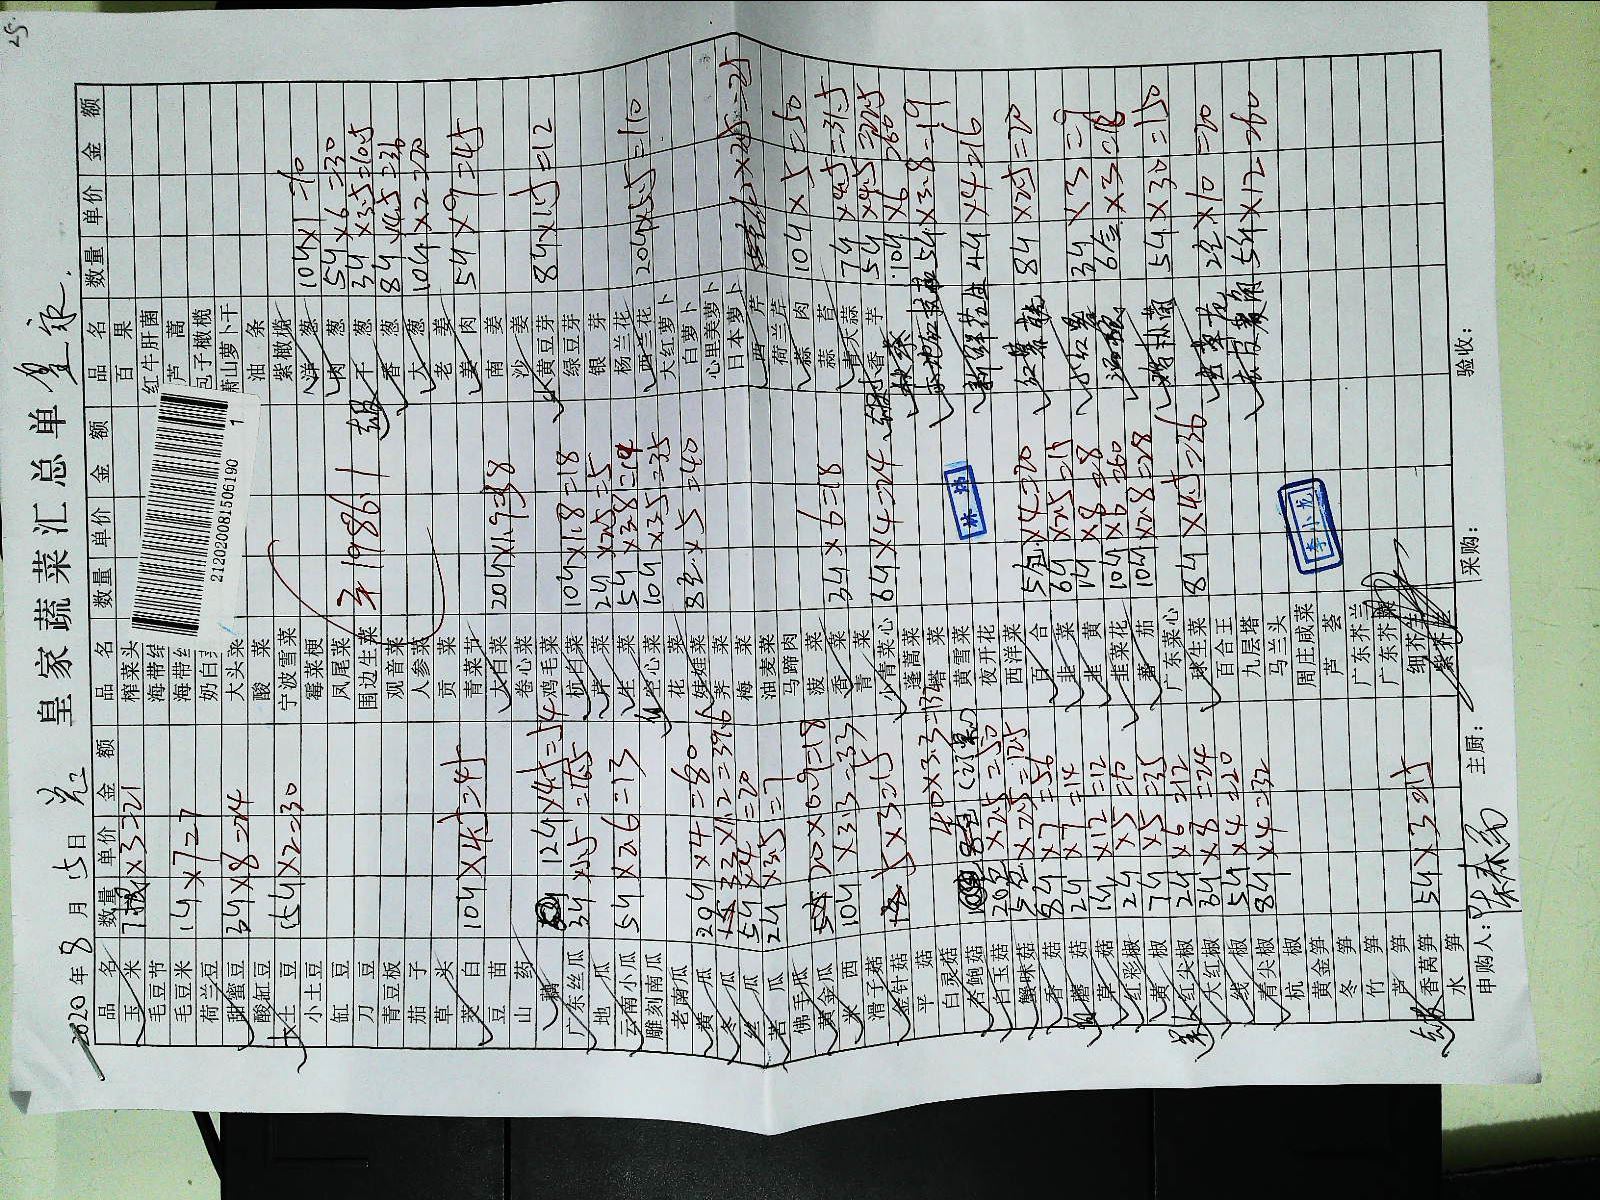 皇家蔬菜汇总单
2020年8月15日
品名 数量 单价 金额 品名 数量 单价 金额 品名 数量 单价 金额
玉米 ×3=21 榨菜头 百果
毛豆节 海带结 红牛肝菌
毛豆米 1斤×7=7 海带丝 芦蒿
荷兰豆 奶白菜 包子橄榄
甜蜜豆 3斤×8=24 大头菜 萧山萝卜干
酸缸豆 酸菜 油条
土豆 15斤×2=30 宁波雪菜 紫橄榄
小土豆 霉菜梗 洋葱 10斤×1=10
缸豆 凤尾菜 肉葱 5斤×6=30
刀豆 围边生菜 干葱 3斤×3.5=10.5
青豆板 观音菜 香葱 8斤×4.5=36
茄子 人参菜 大葱 10斤×2=20
草头 贡菜 老姜
茭白 10斤×4.5=45 青菜节 姜肉 5斤×9=45
豆苗 大白菜 20斤×1.9=38 南姜
山药 卷心菜 沙姜
藕 12斤×4.5=54 鸡毛菜 黄豆芽 8斤×1.5=12
广东丝瓜 3斤×5.5=16.5 杭白菜 10斤×1.8=18 绿豆芽
地瓜 芹菜 2斤×2.5=5 银芽
云南小瓜 5斤×2.6=13 生菜 5斤×3.8=19 杨兰花
雕刻南瓜 空心菜 10斤×3.5=35 西兰花 20斤×5.5=110
老南瓜 花菜 大红萝卜
黄瓜 20斤×4=80 娃娃菜 8包×5=40 白萝卜
冬瓜 33×1.2=39.6 荠菜 心里美萝卜
丝瓜 5斤×4=20 梅菜 日本萝卜
苦瓜 2斤×3.5=7 油麦菜 西芹
佛手瓜 马蹄肉 荷兰芹
黄金瓜 20×0.9=18 菠菜 蒜肉 10斤×5=50
米西 10斤×3.3=33 香菜 3斤×6=18 蒜苔
滑子菇 青菜 青大蒜 7斤×4.5=31.5
金针菇 5×3=15 小青菜心 6斤×4=24 香芋 5斤×4.5=22.5
平菇 蓬蒿菜 10斤×6=60
白灵菇 40×3.3=132 塔菜 5斤×3.8=19
杏鲍菇 黄雪菜
白玉菇 20包×2.5=50 夜开花 4斤×4=16
蟹味菇 5包×2.5=12.5 西洋菜
香菇 8斤×7=56 百合 5包×4=20 红薯 8斤×2.5=20
蘑菇 2斤×7=14 韭菜 6斤×2.5=15
草菇 1斤×12=12 韭黄 1斤×8=8 3斤×3=9
红彩椒 2斤×5=10 韭菜花 10斤×6=60 6盒×3=18
黄椒 7斤×5=35 蕃茄 10斤×2.8=28
红尖椒 2斤×6=12 广东菜心 鸡枞菌 5斤×30=150
大红椒 3斤×8=24 球生菜 8斤×4.5=36
线椒 5斤×4=20 百合王 2包×10=20
青尖椒 8斤×4=32 九层塔 5斤×12=60
杭椒 马兰头
黄金笋 周庄咸菜
冬笋 芦荟
竹笋 广东芥兰
芦笋 广东芥菜
香莴笋 5斤×3=15 细芥兰
水笋 紫芥兰
1986.1
212020081506190 1
李小龙
申购人: 主厨: 采购: 验收:
25